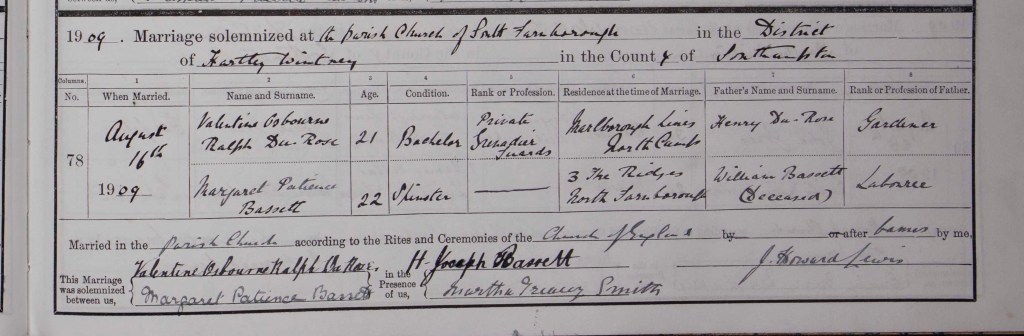 1909. Marriage solemnized at the Parish Church of South Farnborough in the District
of Hartley Wintney in the County of Southampton
Columns. 1 2 3 4 5 6 7 8
No. When Married. Name and Surname. Age. Condition. Rank or Profession. Residence at the time of Marriage. Father's Name and Surname. Rank or Profession of Father.
78 August 16th 1909
Valentine Osbourne Ralph Du-Rose 21 Bachelor Private Grenadier Guards Marlborough Lines North Camp Henry Du-Rose Gardener
Margaret Patience Bassett 22 Spinster 3 The Ridges North Farnborough William Bassett (deceased) Labourer
Married in the Parish Church according to the Rites and Ceremonies of the Church of England by or after banns by me,
This Marriage was solemnized between us, Valentine Osbourne Ralph Du Rose in the Presence of us, H. Joseph Bassett J. Howard Lewis
Margaret Patience Bassett Martha Smith